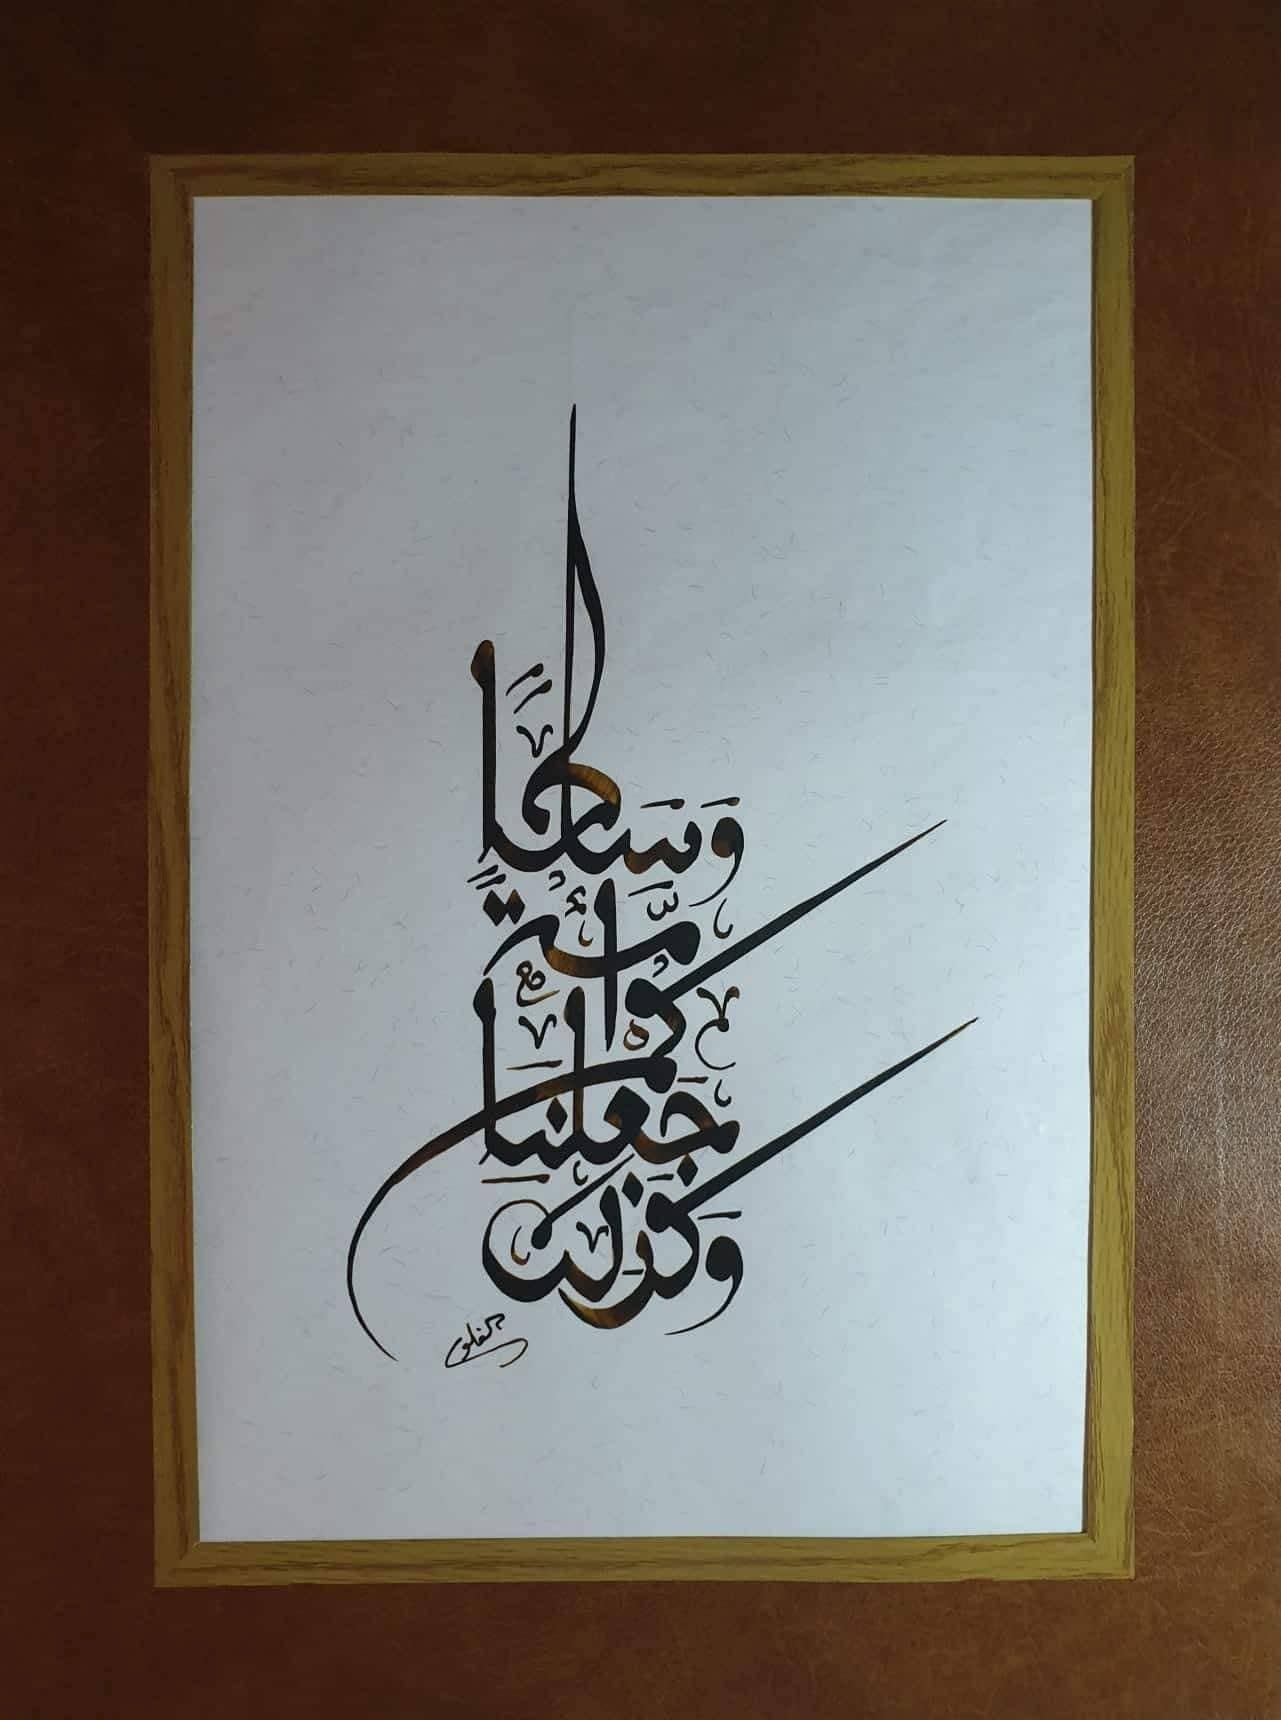 وَكَذَٰلِكَ
جَعَلْنَاكُمْ
أُمَّةً
وَسَطًا